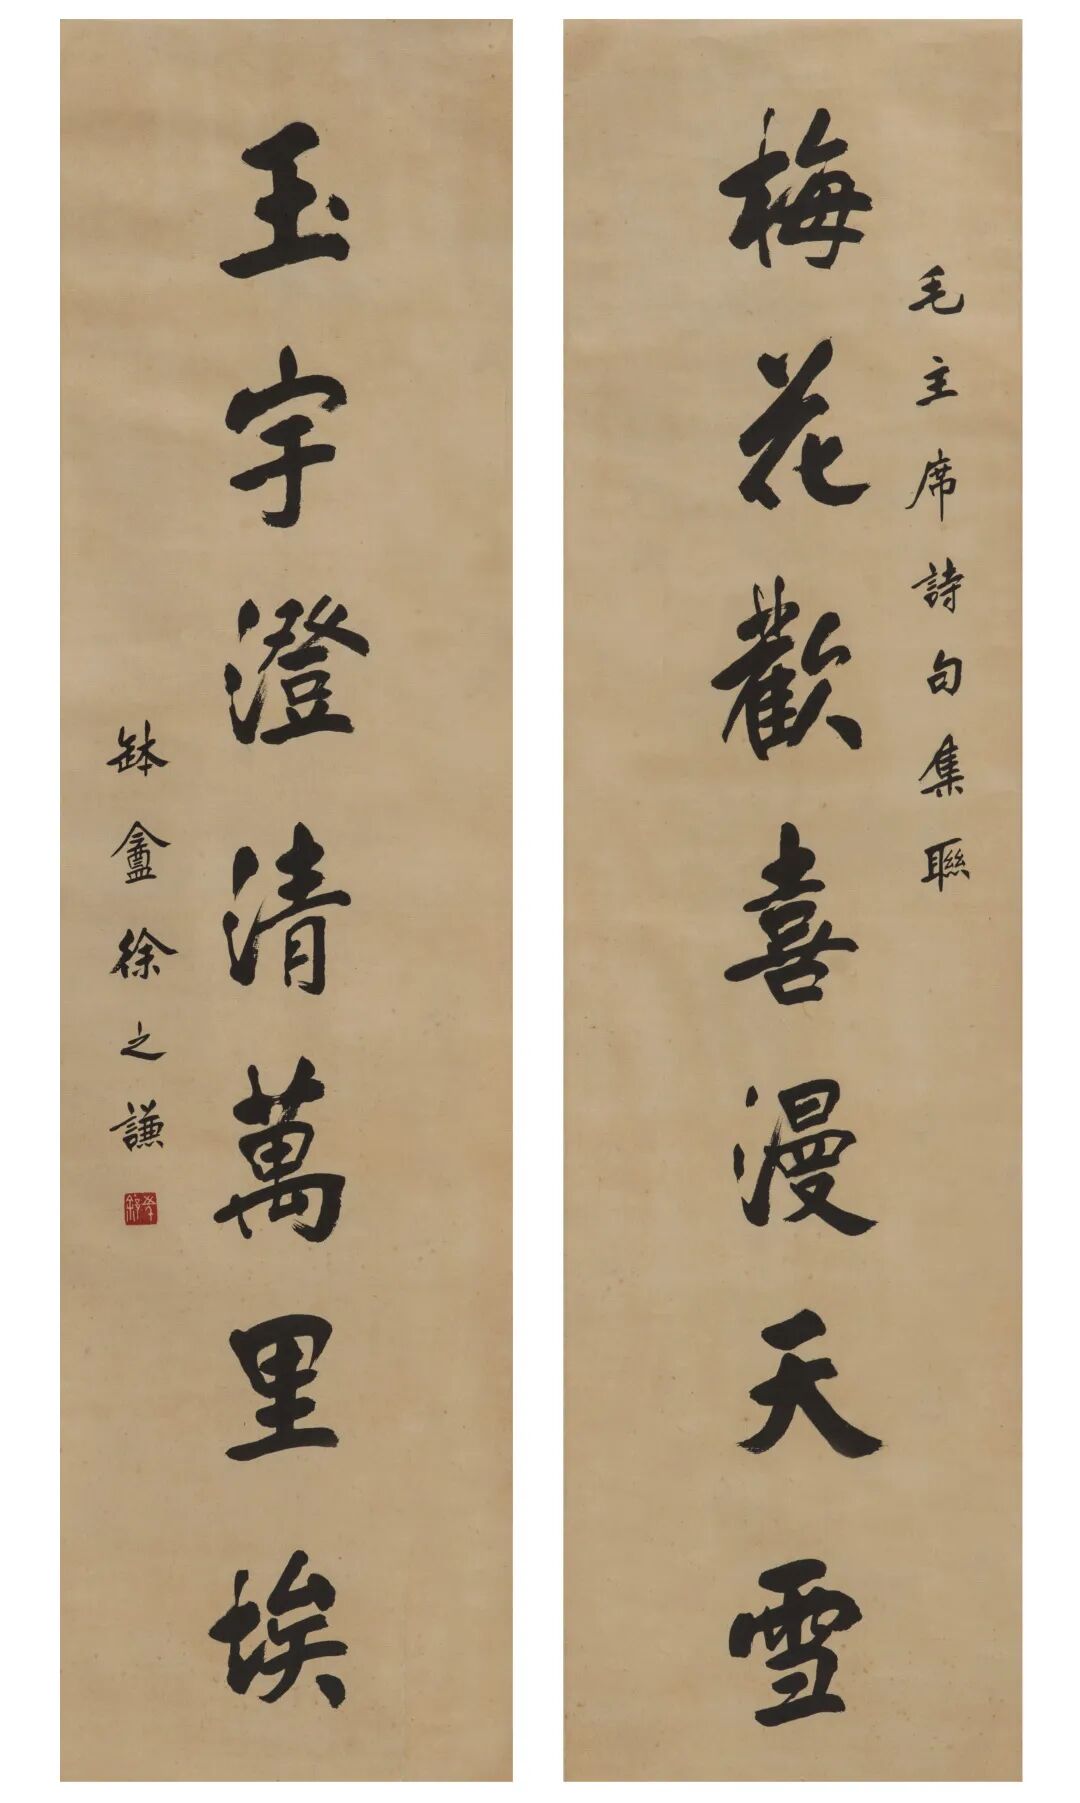 毛主席詩句集聯
梅花歡喜漫天雪
玉宇澄清萬里埃
缽盦徐之謙